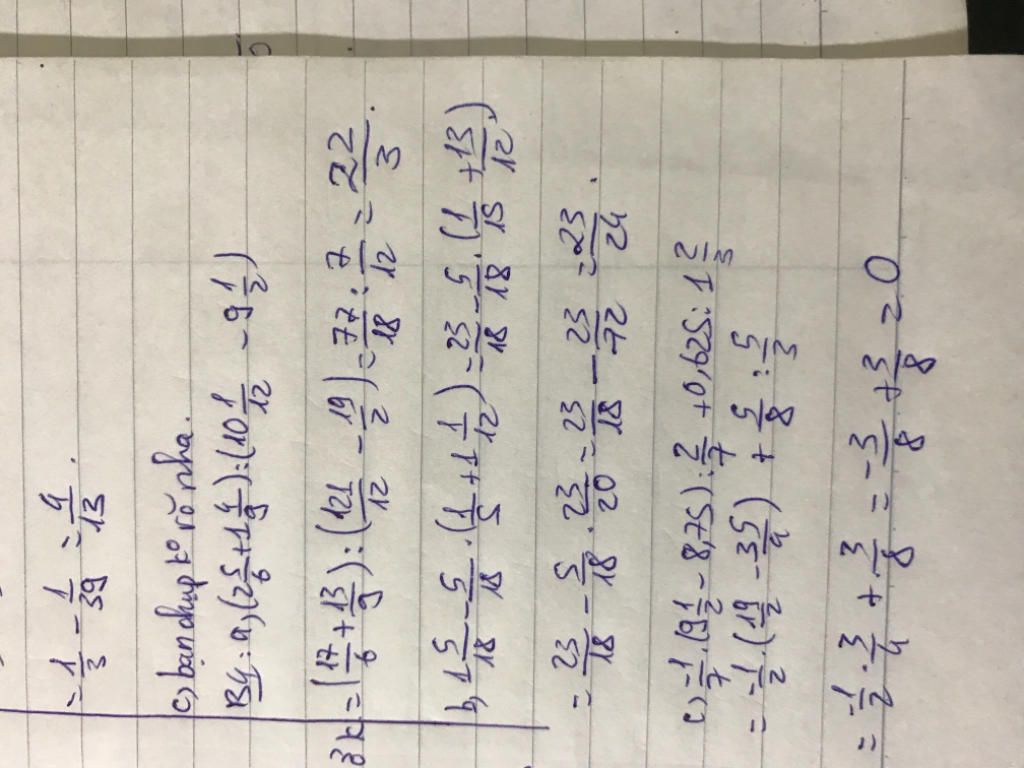 = 1/3 - 1/39 = 4/13 .
c) bạn chụp k° rõ nha.
B4: a, (2 5/6 + 1 4/9) : (10 1/12 - 9 1/2)
= (17/6 + 13/9) : (121/12 - 19/2) = 77/18 : 7/12 = 22/3 .
b, 1 5/18 - 5/18 . (1/5 + 1 1/12) = 23/18 - 5/18 . (1/15 + 13/12)
= 23/18 - 5/18 . 23/20 = 23/18 - 23/72 = 23/24 .
c) -1/7 . (9 1/2 - 8,75) : 2/7 + 0,625 : 1 2/3
= -1/2 . (19/2 - 35/4) + 5/8 : 5/3
= -1/2 . 3/4 + 3/8 = -3/8 + 3/8 = 0